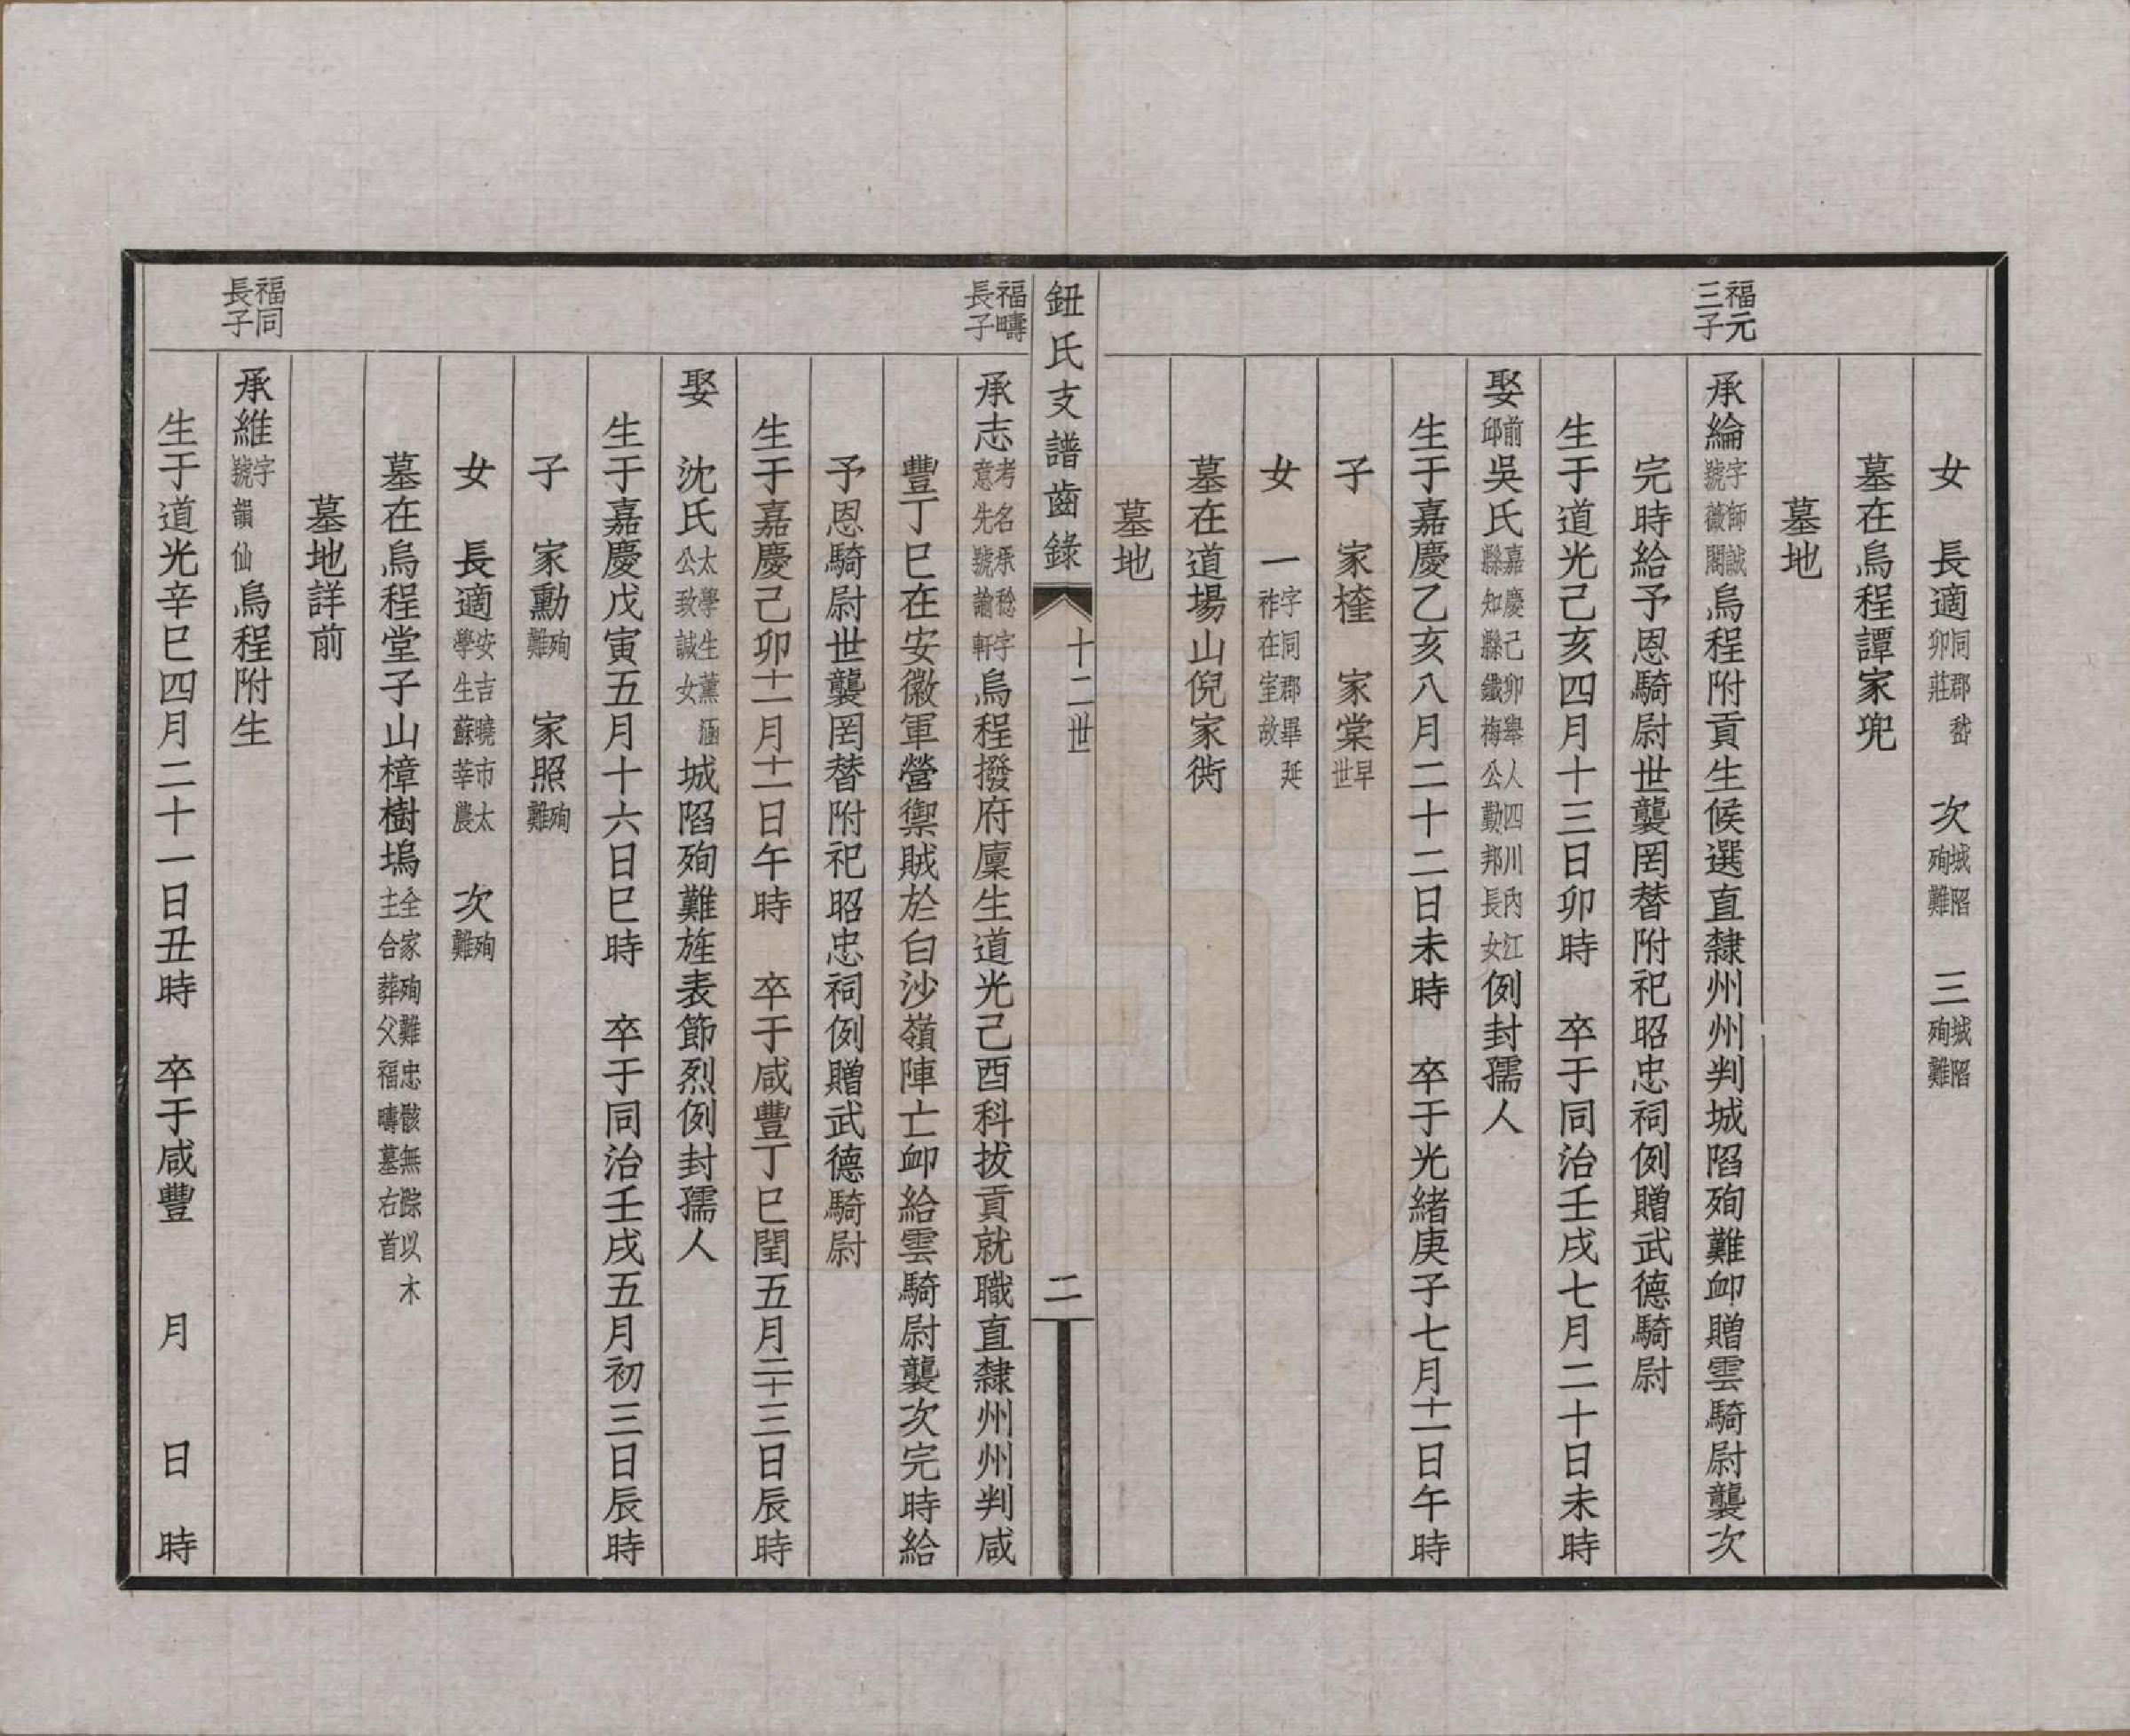 女　長適同郡嵇卯莊　次城陷殉難　三城陷殉難
墓在烏程譚家兜
墓地
福元三子
承綸字師誠號薇閣烏程附貢生候選直隸州州判城陷殉難卹贈雲騎尉襲次
完時給予恩騎尉世襲罔替附祀昭忠祠例贈武德騎尉
生于道光己亥四月十三日卯時　卒于同治壬戌七月二十日未時
娶前邱吳氏嘉慶己卯舉人四川內江縣知縣鐵梅公勤邦長女例封孺人
生于嘉慶乙亥八月二十二日未時　卒于光緒庚子七月十一日午時
子　家㯖　家棠早世
女　一字同郡畢延祚在室故
墓在道場山倪家衖
墓地
鈕氏支譜齒錄　十二世　二
福疇長子
承志考名承稔字意先號諭軒烏程撥府廩生道光己酉科拔貢就職直隸州州判咸
豐丁巳在安徽軍營禦賊於白沙嶺陣亡卹給雲騎尉襲次完時給
予恩騎尉世襲罔替附祀昭忠祠例贈武德騎尉
生于嘉慶己卯十一月十一日午時　卒于咸豐丁巳閏五月二十三日辰時
娶　沈氏太學生薰涵公致誠女城陷殉難旌表節烈例封孺人
生于嘉慶戊寅五月十六日巳時　卒于同治壬戌五月初三日辰時
子　家勳殉難　家照殉難
女　長適安吉曉市太學生蘇莘農　次殉難
墓在烏程堂子山樟樹塢全家殉難忠骸無踪以木主合葬父福疇墓右首
墓地詳前
福同長子
承維字號韻仙烏程附生
生于道光辛巳四月二十一日丑時　卒于咸豐　月　日　時